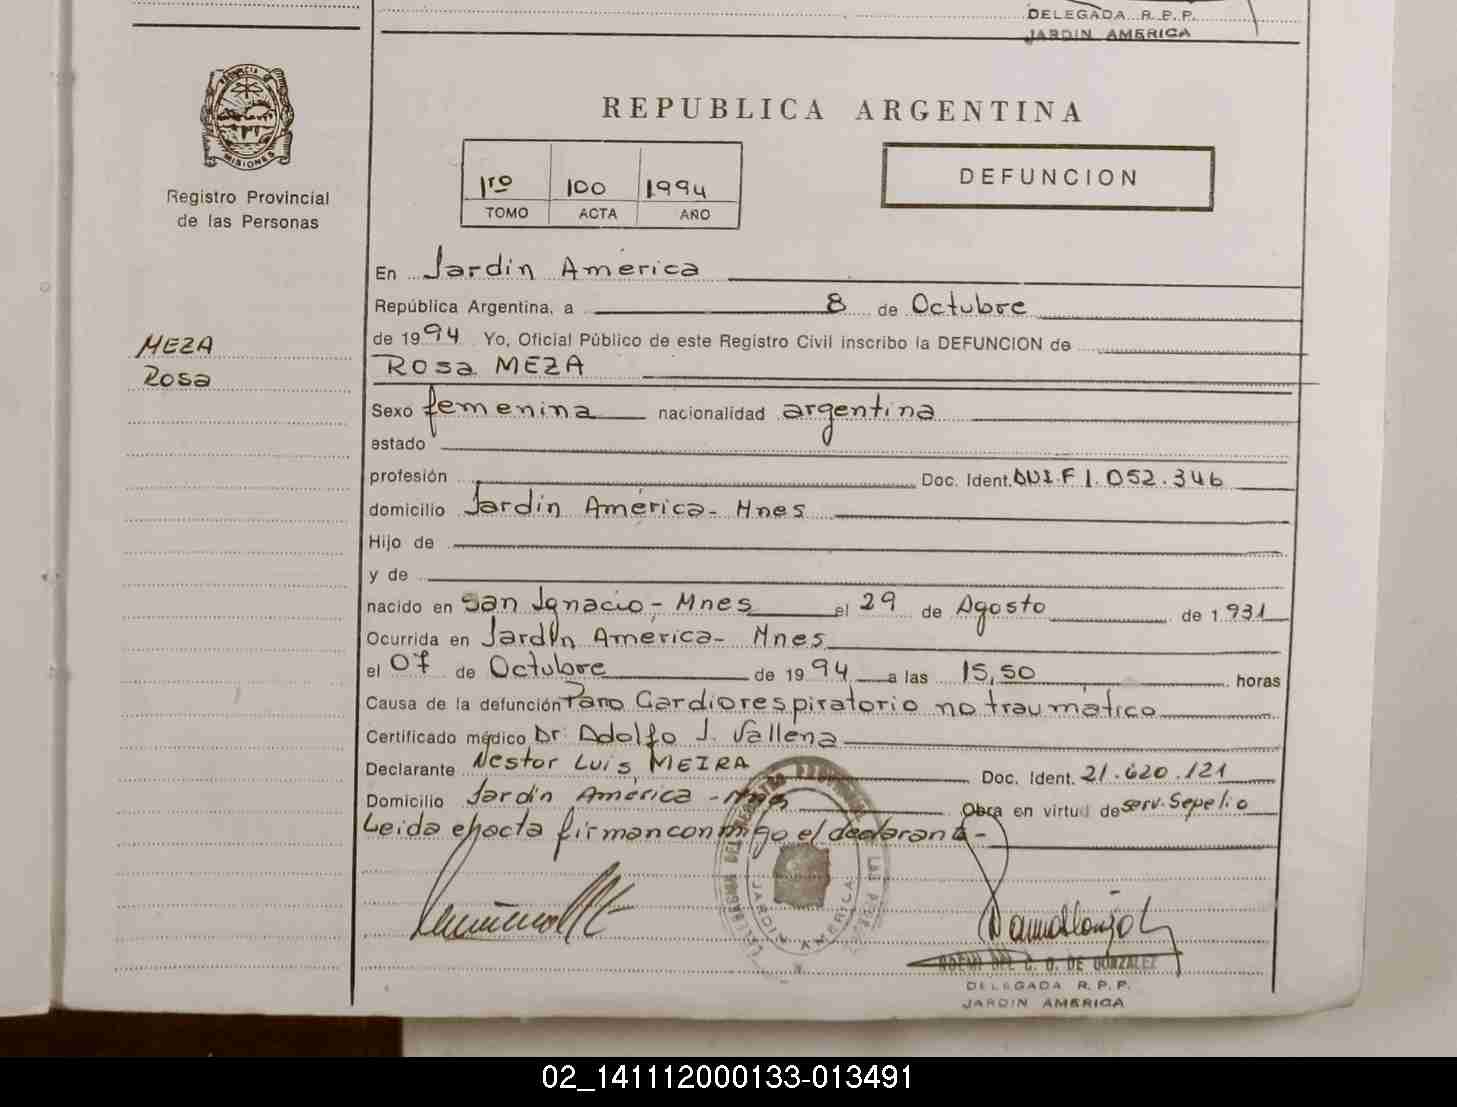 DELEGADA R.P.P.
JARDIN AMERICA
PROVINCIA DE
MISIONES
Registro Provincial
de las Personas
REPUBLICA ARGENTINA
1ro 100 1994
TOMO ACTA AÑO
DEFUNCION
En Jardín América
República Argentina, a 8 de Octubre
de 1994 Yo, Oficial Público de este Registro Civil inscribo la DEFUNCION de
MEZA
Rosa
Rosa MEZA
Sexo femenina nacionalidad argentina
estado
profesión Doc. Ident. DNI.F 1.052.346
domicilio Jardín América- Mnes
Hijo de
y de
nacido en San Ignacio- Mnes el 29 de Agosto de 1.931
Ocurrida en Jardín América- Mnes
el 07 de Octubre de 1994 a las 15,50 horas
Causa de la defunción Paro Cardiorespiratorio no traumático
Certificado médico Dr. Adolfo J. Vallena
Declarante Nestor Luis MEIRA Doc. Ident. 21.620.121
Domicilio Jardín América - Mnes Obra en virtud de serv. Sepelio
Leida el acta firman conmigo el declarante-
JARDIN AMERICA
NOEMI DEL C. G. DE GONZALEZ
DELEGADA R.P.P.
JARDIN AMERICA
02_141112000133-013491